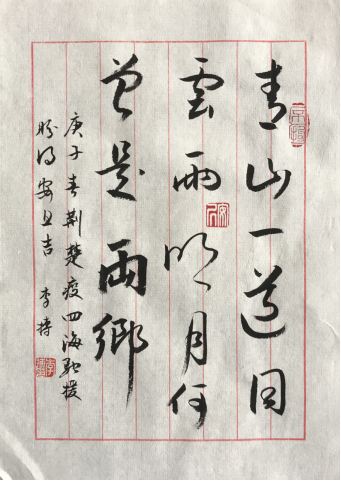 青山一道同
雲雨明月何
曾是兩鄉
庚子春荆楚疫四海馳援
盼得安且吉 李